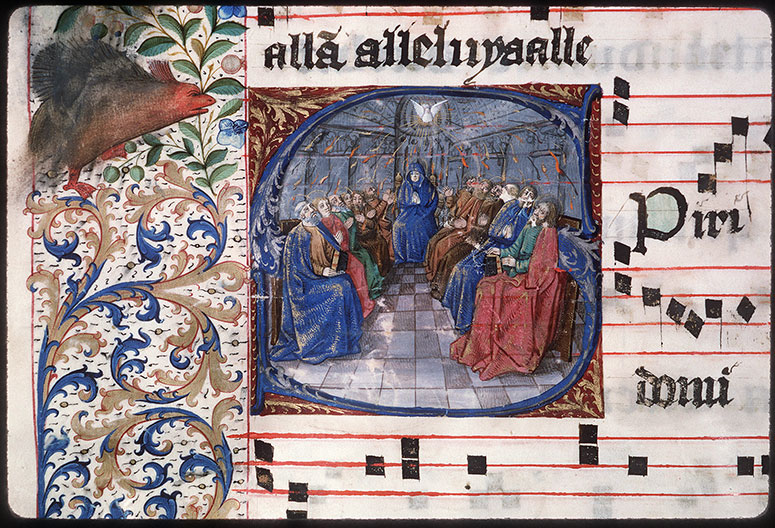 allā alleluyaalle
S
Piri
domi